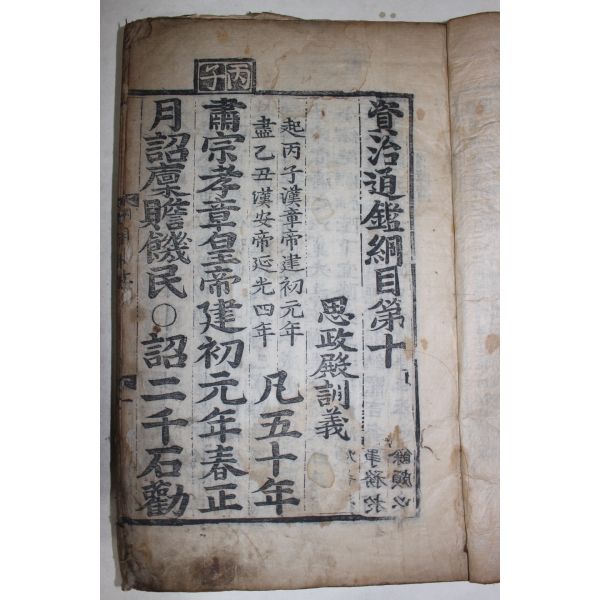 丙子
資治通鑑綱目第十
思政殿訓義
起丙子漢章帝建初元年
盡乙丑漢安帝延光四年
凡五十年
肅宗孝章皇帝建初元年春正
月詔廩贍饑民○詔二千石勸